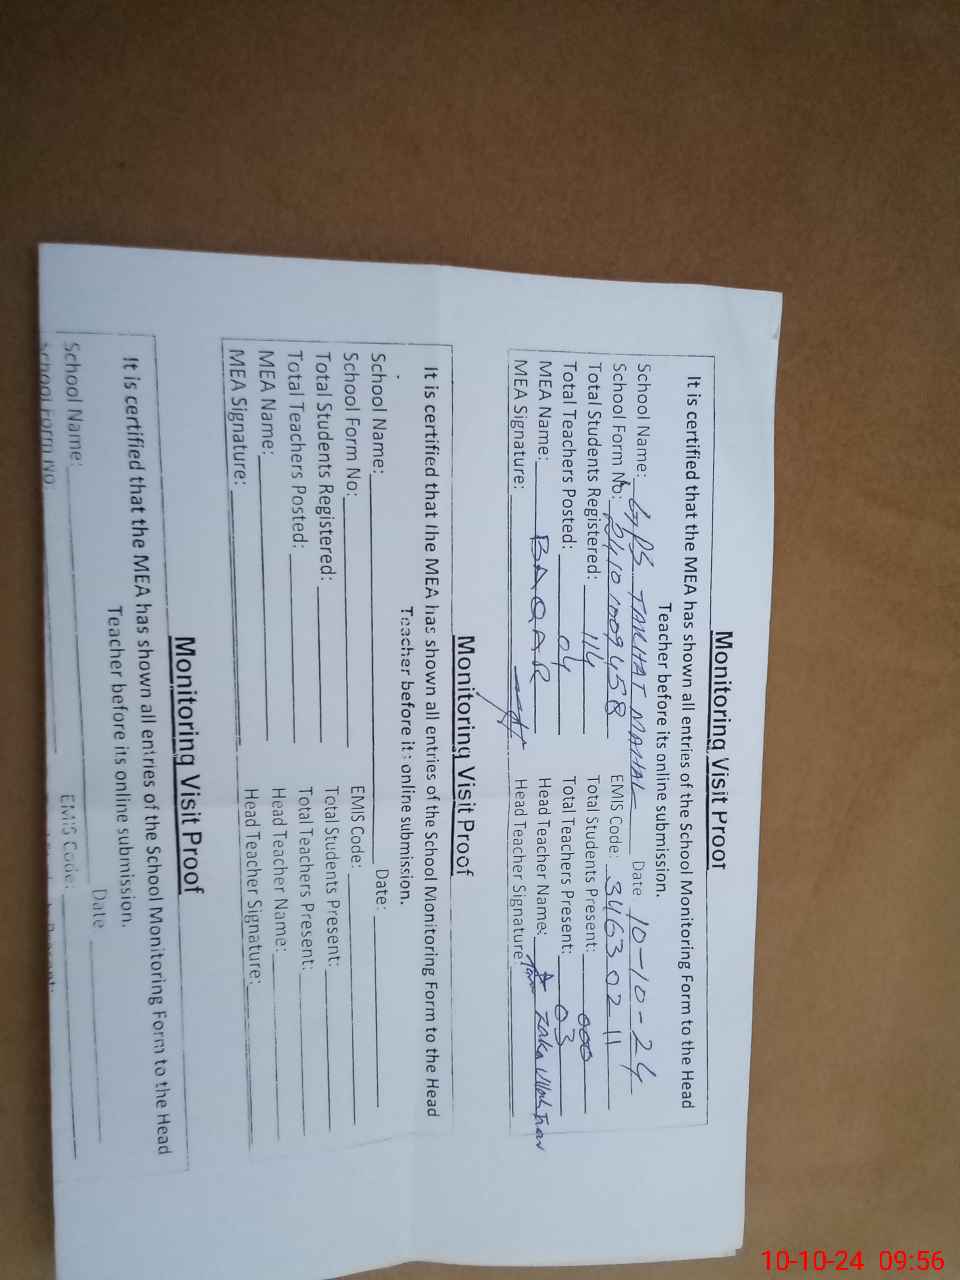 Monitoring Visit Proof
It is certified that the MEA has shown all entries of the School Monitoring Form to the Head
Teacher before its online submission.
School Name: GPS TAKHAT MAHAL Date 10-10-24
School Form No: EMIS Code: 34630211
Total Students Registered: 114 Total Students Present: 000
Total Teachers Posted: 04 Total Teachers Present: 03
MEA Name: BAQAR Head Teacher Name: Zaka Ullah
MEA Signature: Head Teacher Signature:
Monitoring Visit Proof
It is certified that the MEA has shown all entries of the School Monitoring Form to the Head
Teacher before its online submission.
School Name: Date:
School Form No: EMIS Code:
Total Students Registered: Total Students Present:
Total Teachers Posted: Total Teachers Present:
MEA Name: Head Teacher Name:
MEA Signature: Head Teacher Signature:
Monitoring Visit Proof
It is certified that the MEA has shown all entries of the School Monitoring Form to the Head
Teacher before its online submission.
School Name: Date
School Form No: EMIS Code:
10-10-24 09:56